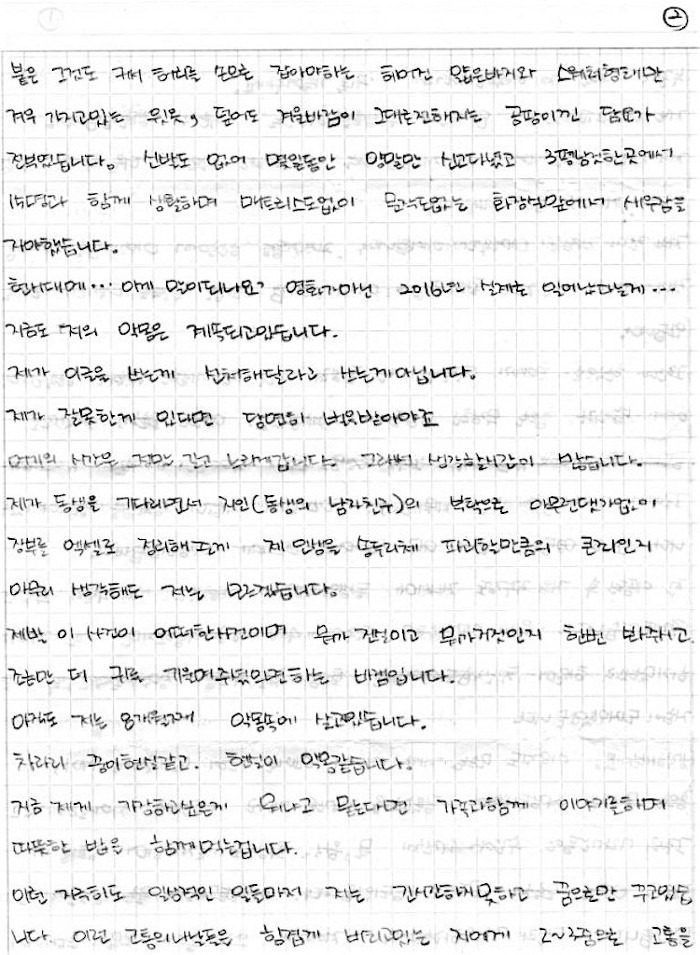 ②
붙은 그것도 커서 허리를 손으로 잡아야하는 하나의 얇은바지와 스웨터형태만
겨우 가지고있는 윗옷, 덮어도 겨울바람이 그대로전해지는 곰팡이낀 담요가
전부였습니다. 신발도 없어 몇일동안 양말만 신고다녔고 3평남짓한곳에서
15명과 함께 생활하며 매트리스도없이 문짝도없는 화장실앞에서 새우잠을
자야했습니다.
현시대에… 이게 말이되나요? 영화가아닌 2016년도 실제로 일어났다는게…
지금도 저의 악몽은 계속되고있습니다.
제가 이글을 쓰는게 선처해달라고 쓰는게아닙니다.
제가 잘못한게 있다면 당연히 벌을받아야죠
여기의 시간은 정말 길고 느리게갑니다. 그래서 생각할시간이 많습니다.
제가 동생을 기다리면서 지인(동생의 남자친구)의 부탁으로 아무런댓가없이
장부를 엑셀로 정리해준게 제 인생을 송두리째 파괴할만큼의 큰죄인지
아무리 생각해도 저는 모르겠습니다.
제발 이 사건이 어떠한사건이며 무엇이 진실이고 무엇이거짓인지 한번 봐주시고
조금만 더 귀를 기울여주셨으면하는 바램입니다.
아직도 저는 8개월째 악몽속에 살고있습니다.
차라리 꿈이현실같고. 현실이 악몽같습니다.
저희 제게 가장하고싶은게 뭐냐고 묻는다면 가족과함께 이야기를하며
따뜻한 밥을 함께먹는겁니다.
이런 지극히도 일상적인 일들마저 저는 간시간하지못하고 꿈으로만 꾸고있습
니다. 이런 고통의나날들을 힘겹게 버티고있는 저에게 2~3줄으로 고통을